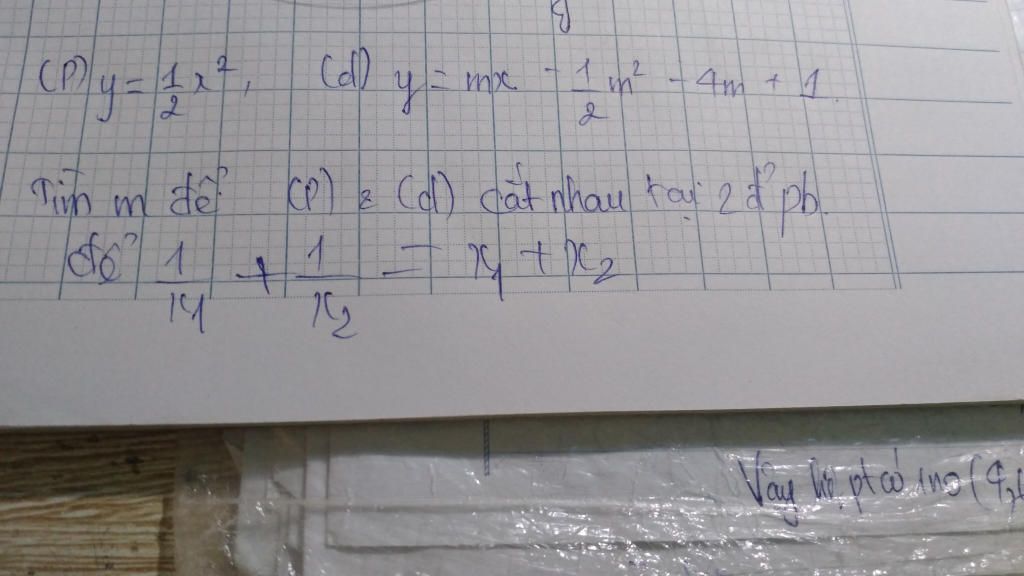 (P) y = 1/2 x², (d) y = mx - 1/2 m² - 4m + 1.
Tìm m để (P) & (d) cắt nhau tại 2 đ' pb.
để 1/x₁ + 1/x₂ = x₁ + x₂
Vậy pt có